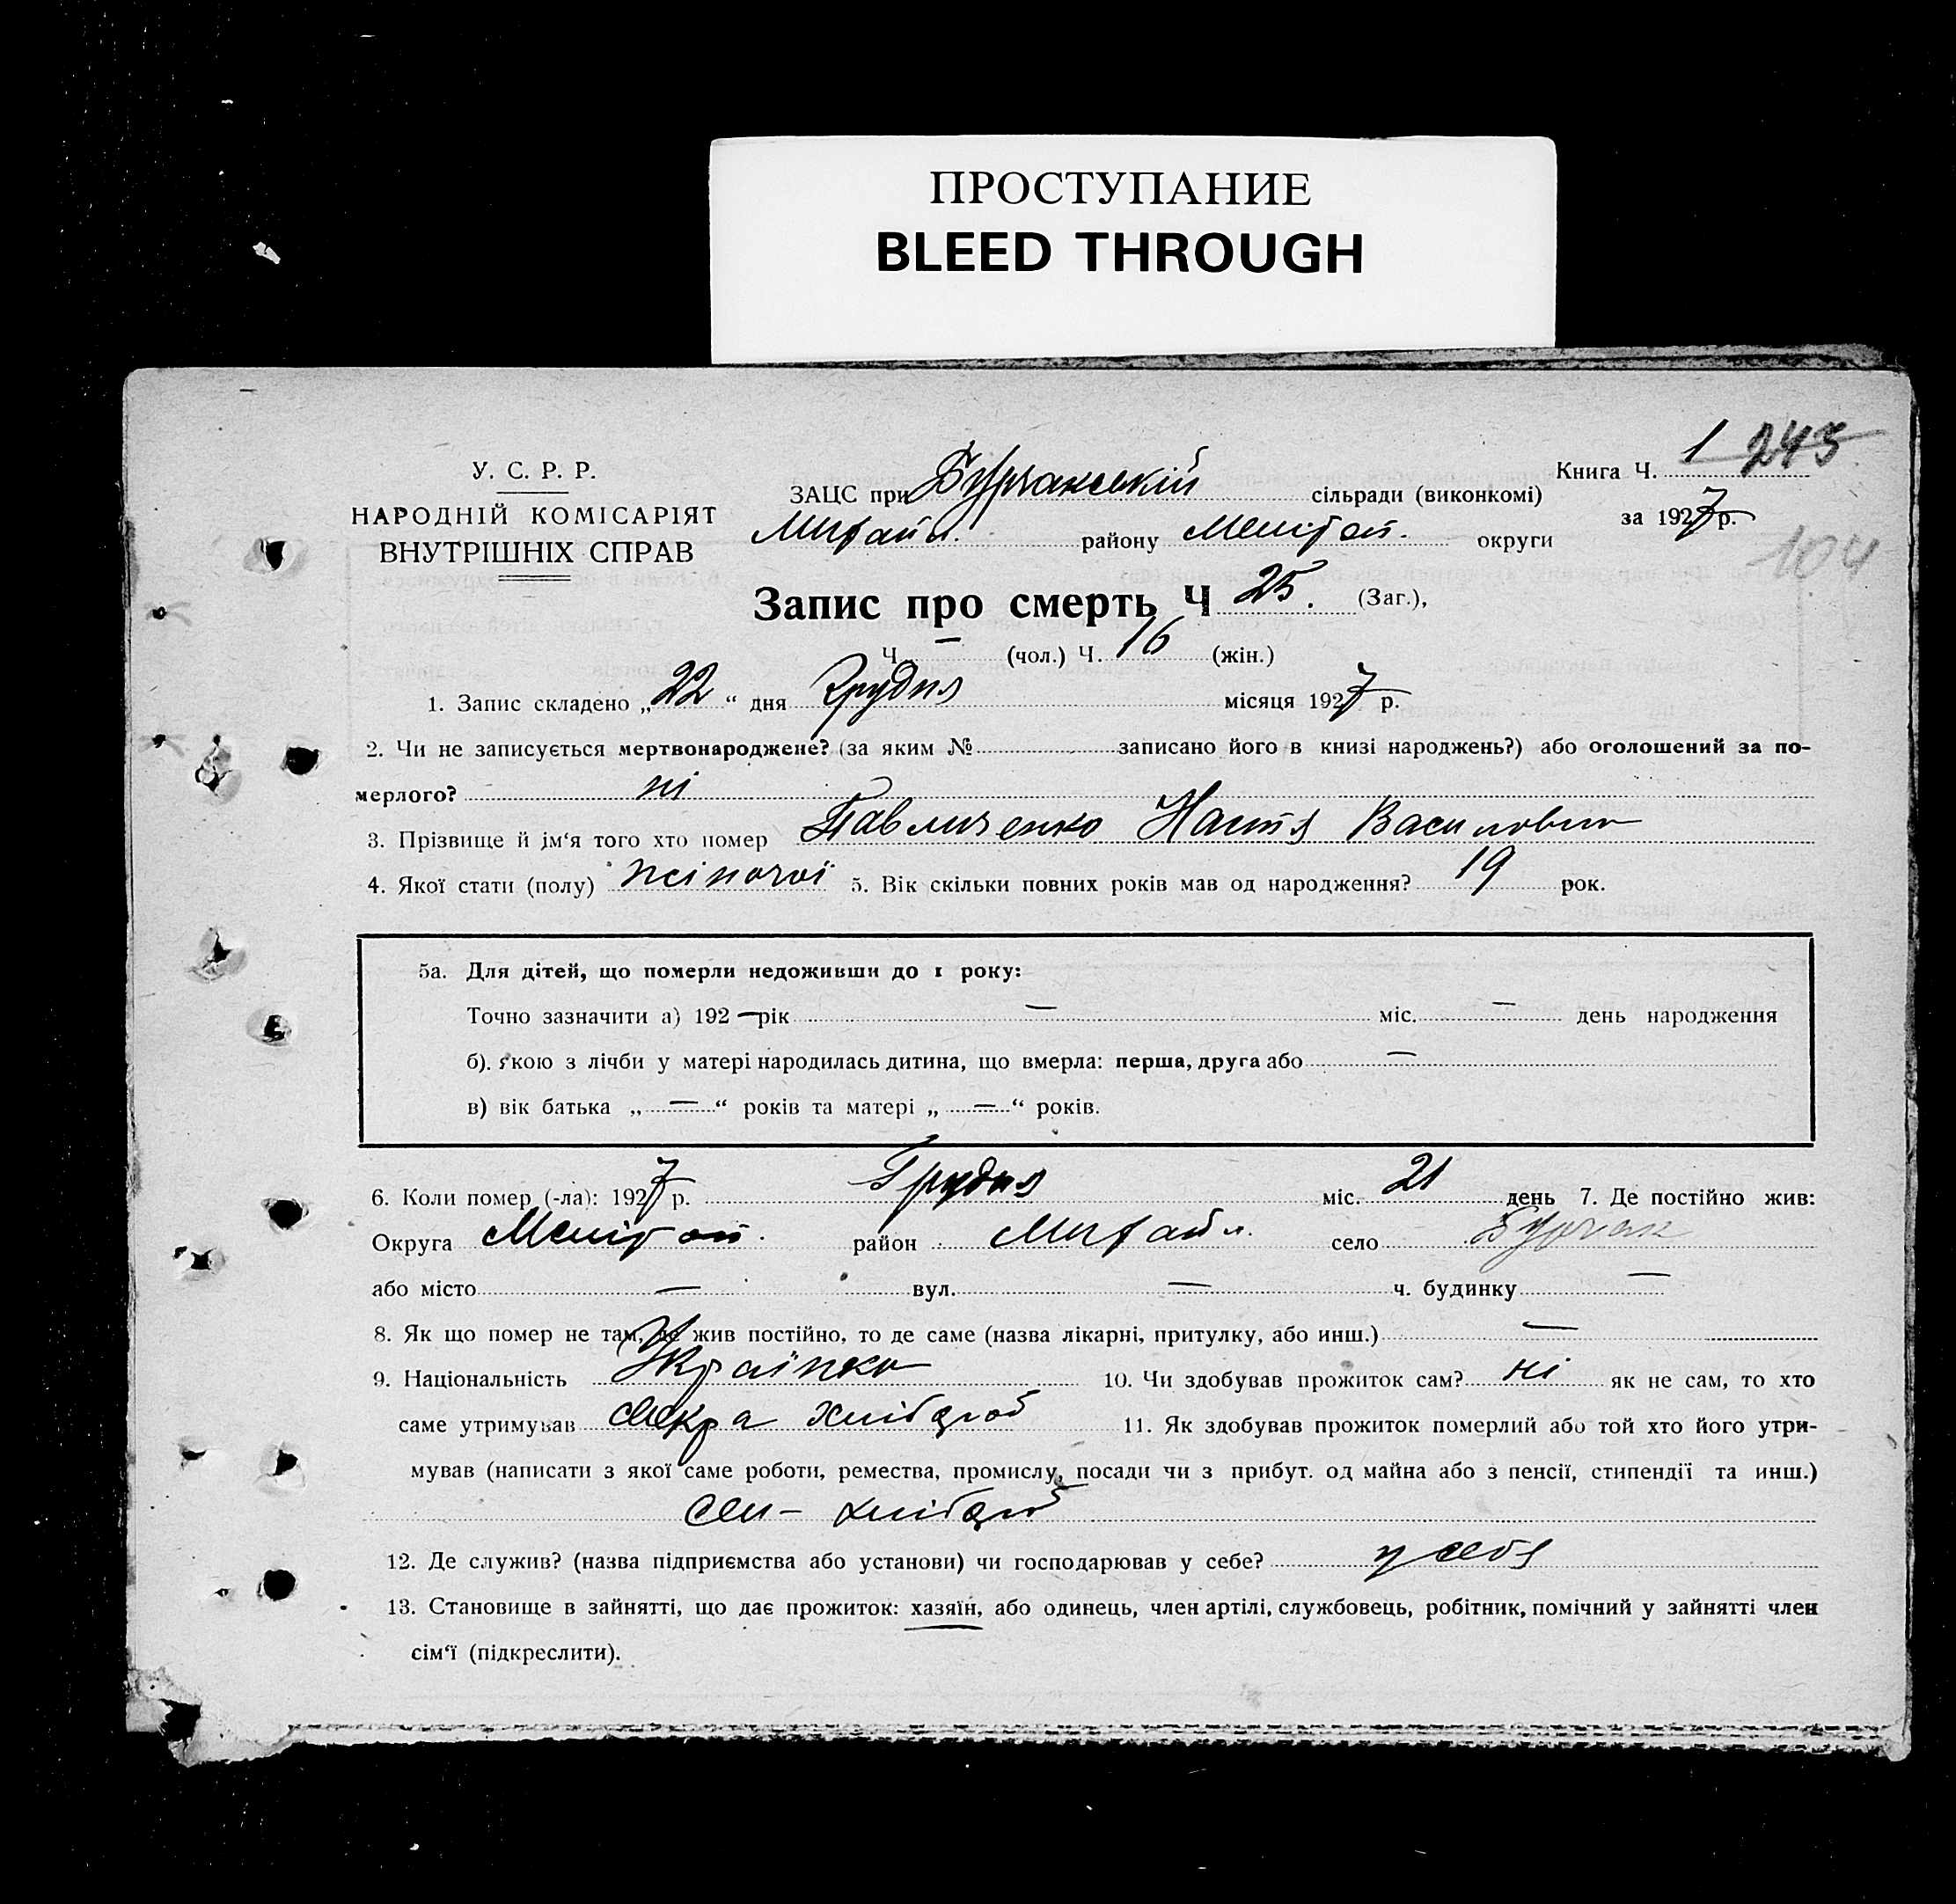 ПРОСТУПАНИЕ
BLEED THROUGH
У. С. Р. Р.
НАРОДНІЙ КОМІСАРІЯТ
ВНУТРІШНІХ СПРАВ
ЗАЦС при Бурчакській сільради (виконкомі)
Михайл. району Меліт. округи
Книга Ч. 1 243
за 1927 р.
104
Запис про смерть Ч 25. (Заг.),
Ч. — (чол.) Ч. 16 (жін.)
1. Запис складено „22“ дня Грудня місяця 1927 р.
2. Чи не записується мертвонароджене? (за яким № записано його в книзі народжень?) або оголошений за по-
мерлого? ні
3. Прізвище й ім‘я того хто помер Павличенко Настя Василовна
4. Якої стати (полу) жіночої 5. Вік скільки повних років мав од народження? 19 рок.
5а. Для дітей, що померли недоживши до 1 року:
Точно зазначити а) 192 — рік — міс. — день народження
б). якою з лічби у матері народилась дитина, що вмерла: перша, друга або —
в) вік батька „ — “ років та матері „ — “ років.
6. Коли помер (-ла): 1927 р. Грудня міс. 21 день 7. Де постійно жив:
Округа Меліт. район Михайл. село Бурчак
або місто — вул. — ч. будинку —
8. Як що помер не там, де жив постійно, то де саме (назва лікарні, притулку, або инш.) —
9. Національність Українка 10. Чи здобував прожиток сам? ні як не сам, то хто
саме утримував свекра хлібороб 11. Як здобував прожиток померлий або той хто його утри-
мував (написати з якої саме роботи, ремества, промислу, посади чи з прибут. од майна або з пенсії, стипендії та инш.)
сел- хлібороб
12. Де служив? (назва підприємства або установи) чи господарював у себе? у себя
13. Становище в зайнятті, що дає прожиток: хазяїн, або одинець, член артілі, службовець, робітник, помічний у зайнятті член
сім‘ї (підкреслити).